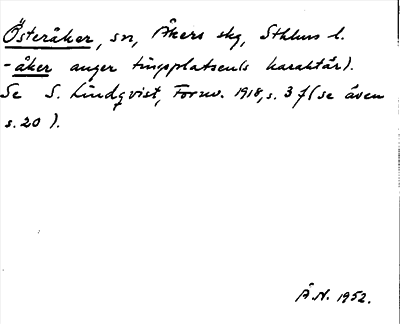 Österåker, sn, Åkers skg, Sthlms l.
-åker anger tingsplatsen(s karaktär).
Se S. Lindqvist, Fornv. 1918, s. 3 f (se även
s. 20 ).
Å.N. 1952.